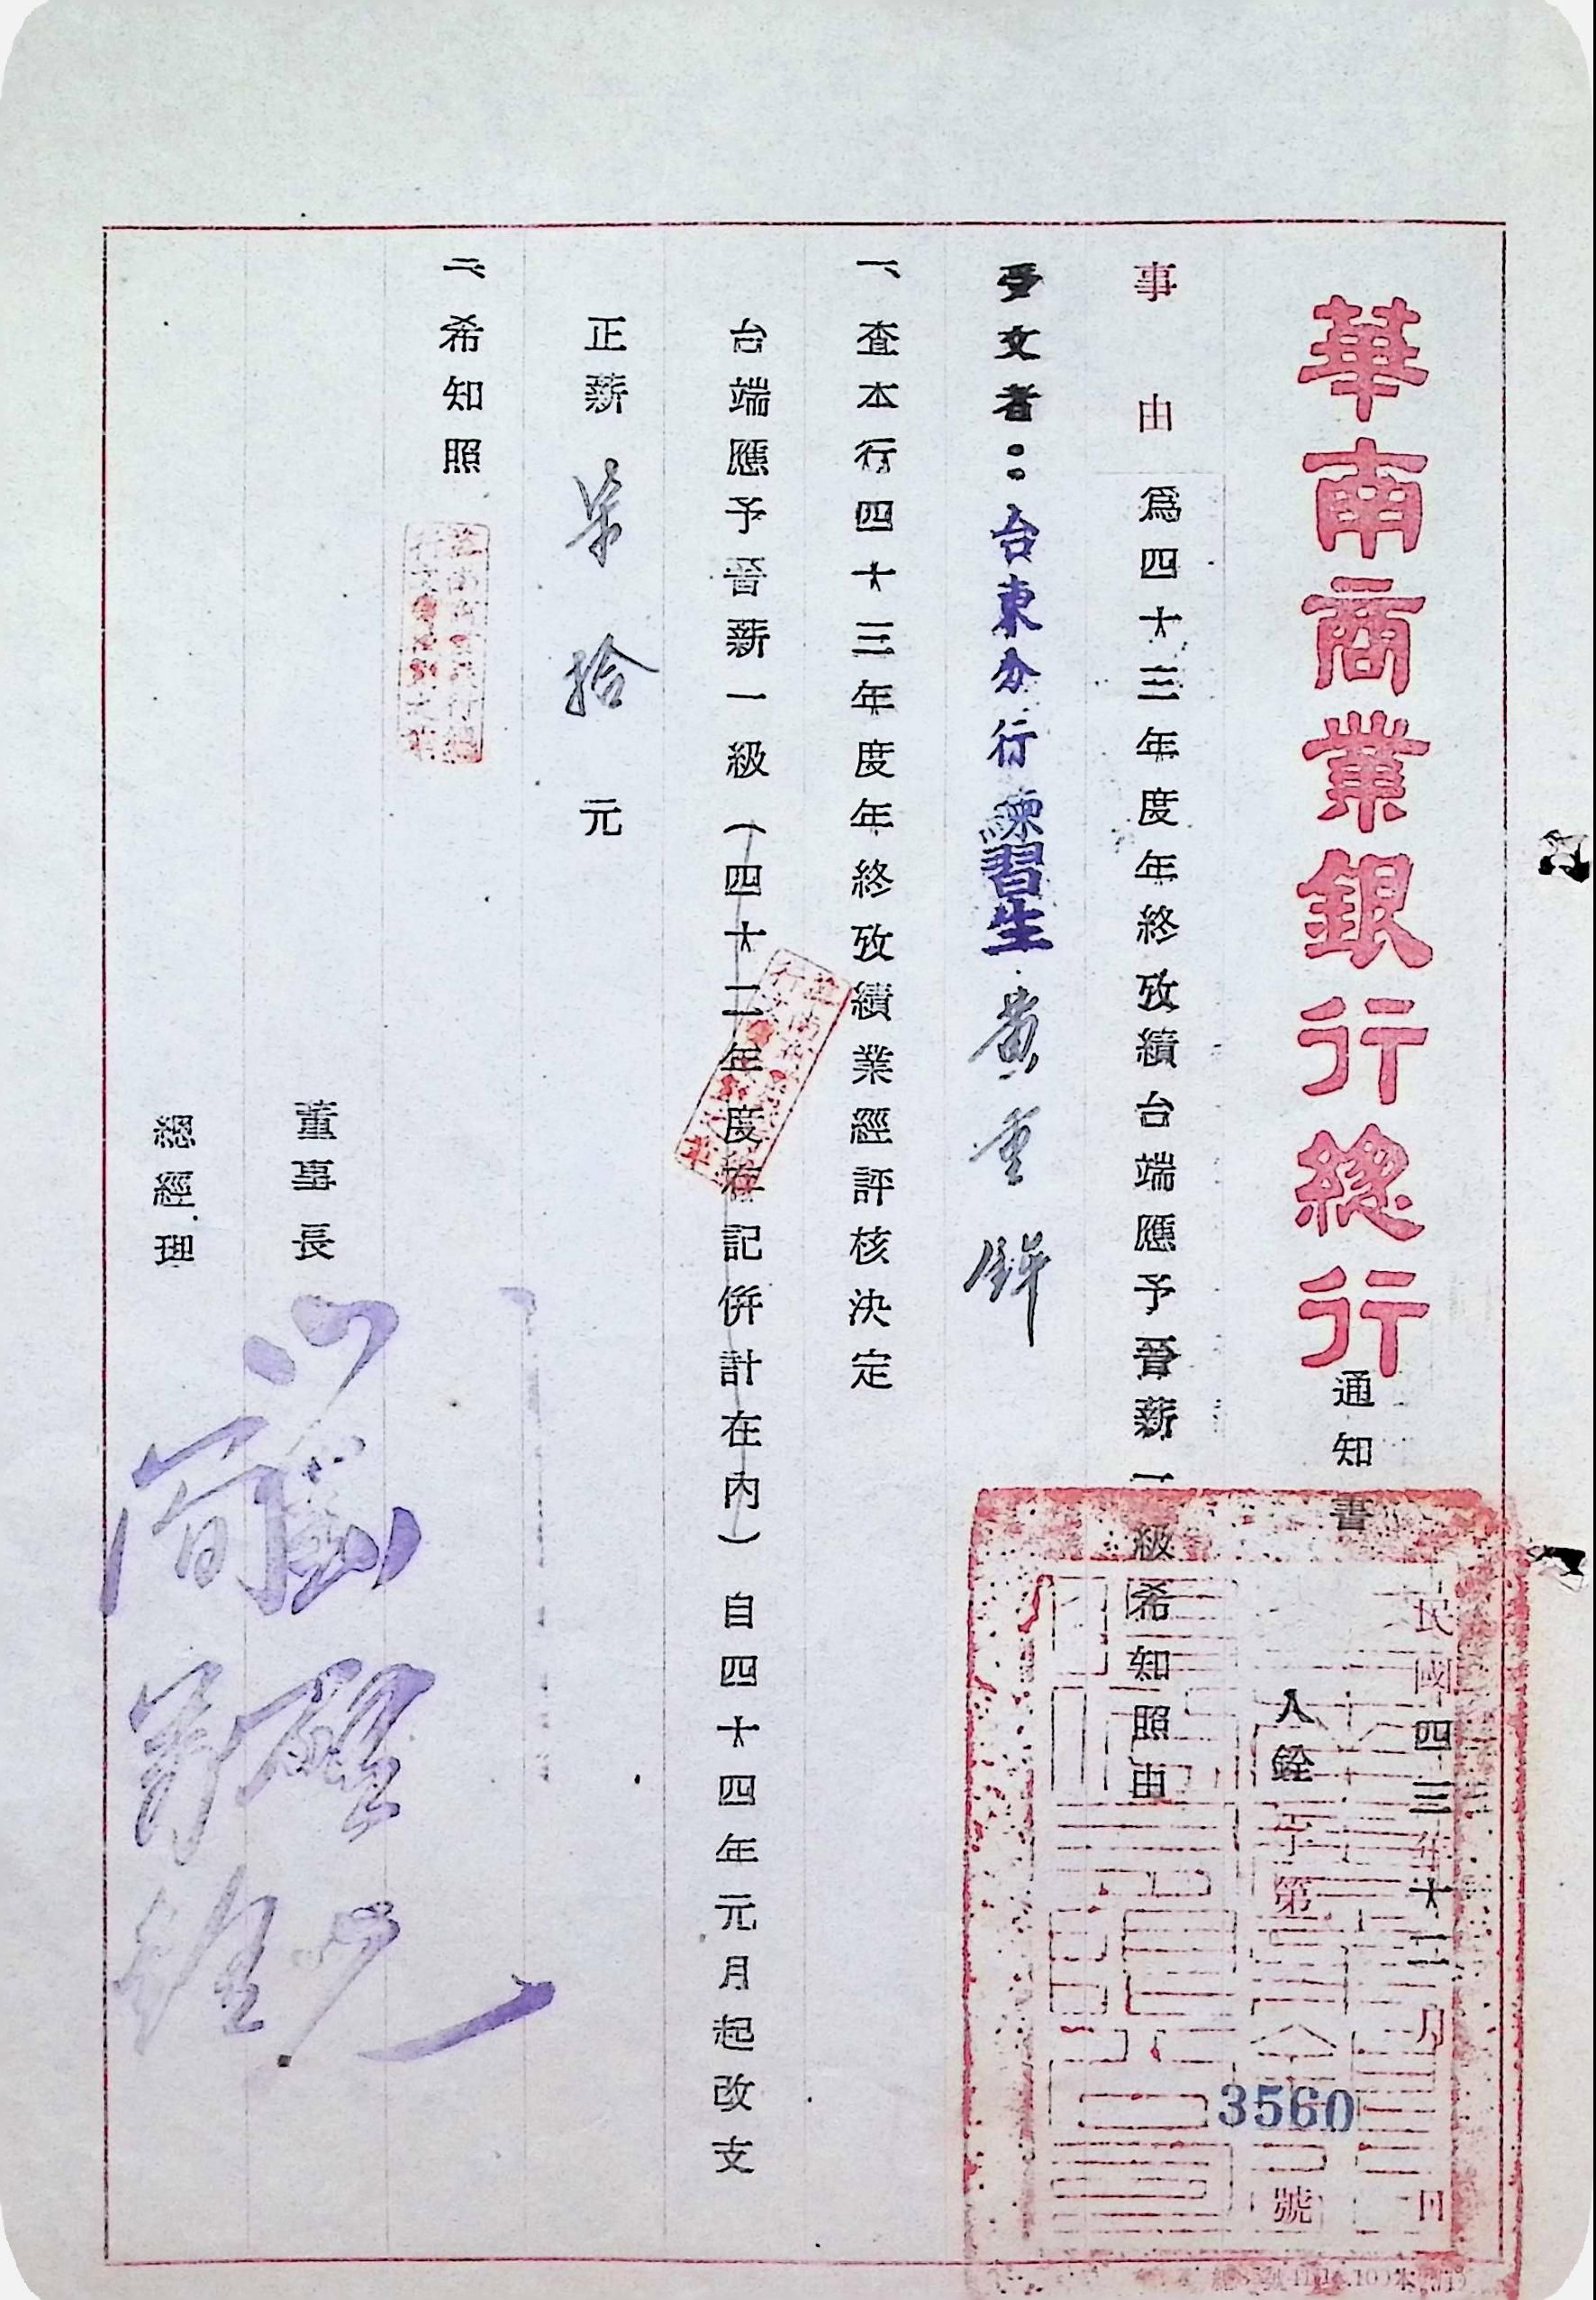 華南商業銀行總行通知書
民國四三年十二月 日
人銓字第3560號
事由 爲四十三年度年終攷績台端應予晉薪一級希知照由
受文者：台東分行練習生 黄重鋅
一、查本行四十三年度年終攷績業經評核決定
台端應予晉薪一級（四十二年度存記併計在內）自四十四年元月起改支
正薪 柒拾元
二、希知照
董事長
總經理